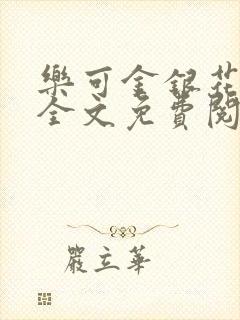 樂可金銀花
全文免費閱
嚴立華